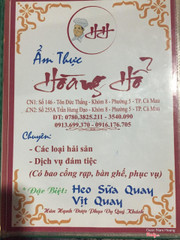 HH
Ẩm Thực
Hoàng Hổ
CN1: Số 146 - Tôn Đức Thắng - Khóm 8 - Phường 5 - TP. Cà Mau
CN2: Số 255A Trần Hưng Đạo - Khóm 8 - Phường 5 - TP. Cà Mau
ĐT: 0780.3825.211 - 3540.090
0913.699.370 - 0916.176.705
Chuyên:
- Các loại hải sản
- Dịch vụ đám tiệc
(Có bao cổng rạp, bàn ghế, phục vụ)
*Đặc Biệt: Heo Sữa Quay
Vịt Quay
Hân Hạnh Được Phục Vụ Quý Khách